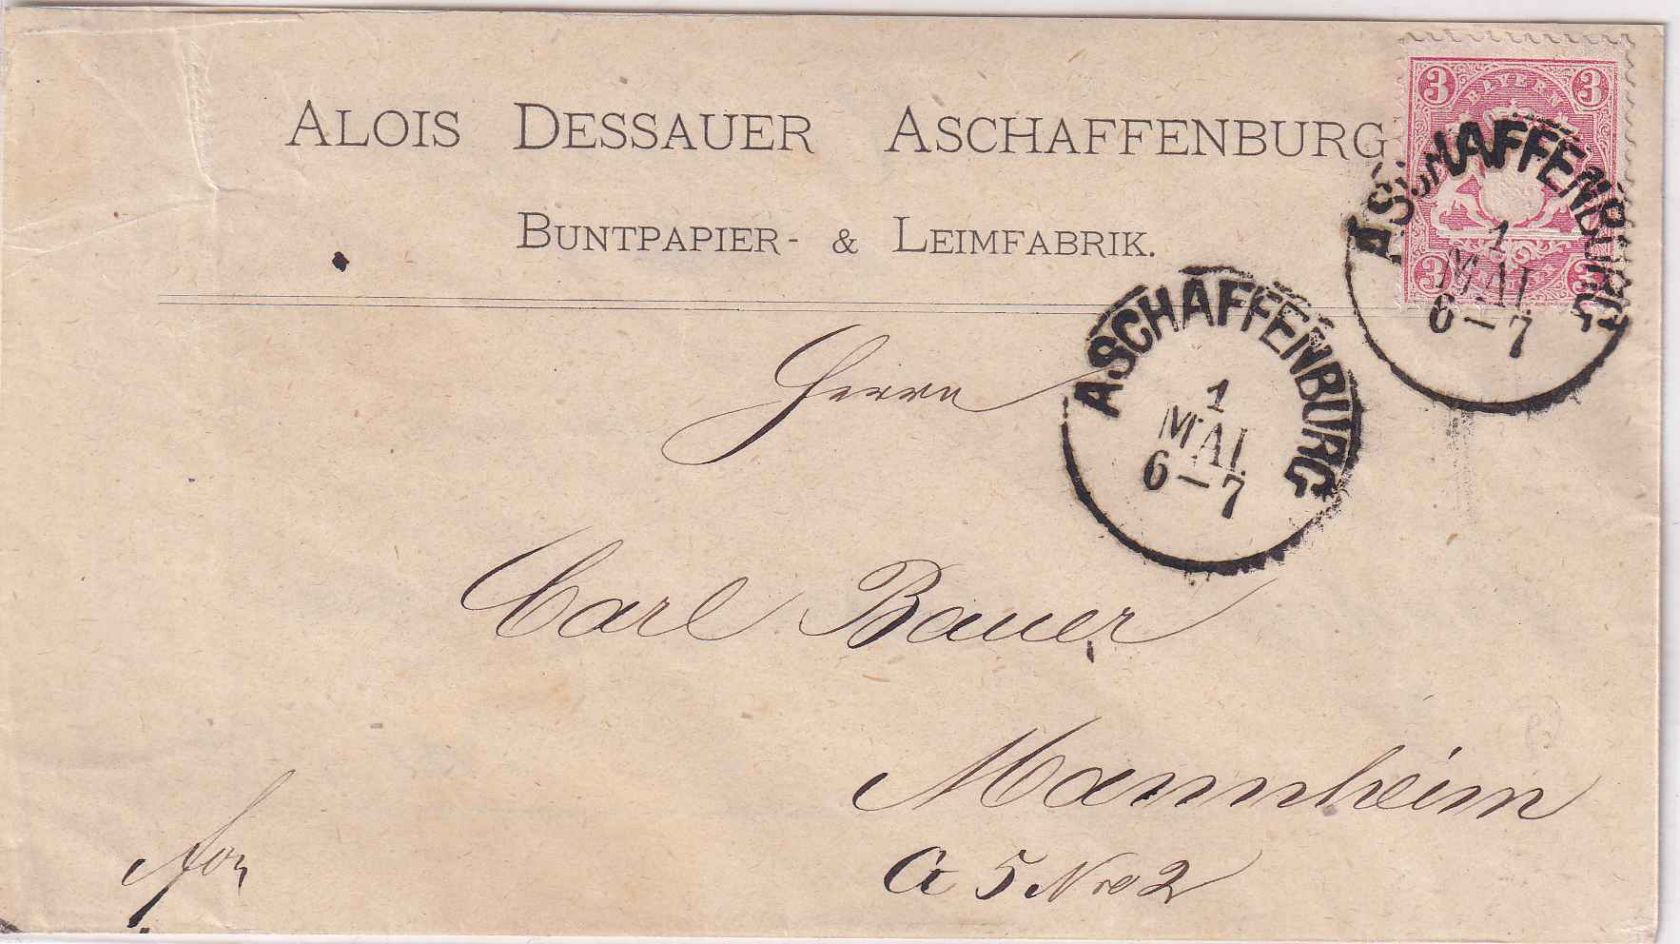 ALOIS DESSAUER ASCHAFFENBURG
BUNTPAPIER- & LEIMFABRIK.
3 BAYERN 3
3 3
ASCHAFFENBURG
1
MAI
6-7
ASCHAFFENBURG
1
MAI.
6-7
Herrn
Carl Bauer
Mannheim
A 5 Nro 2